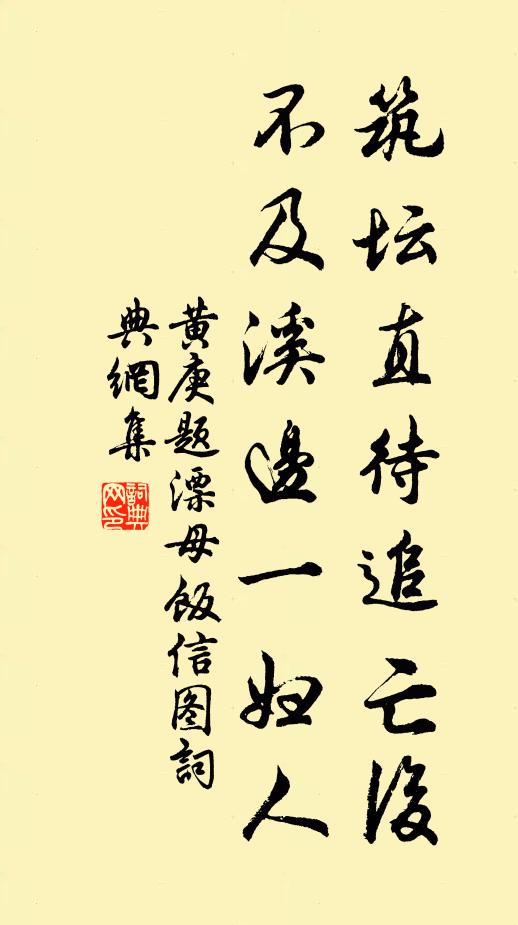 筑坛直待追亡後
不及溪邊一妇人
黄庚题漂母飯信图詞
典網集
詞典网印